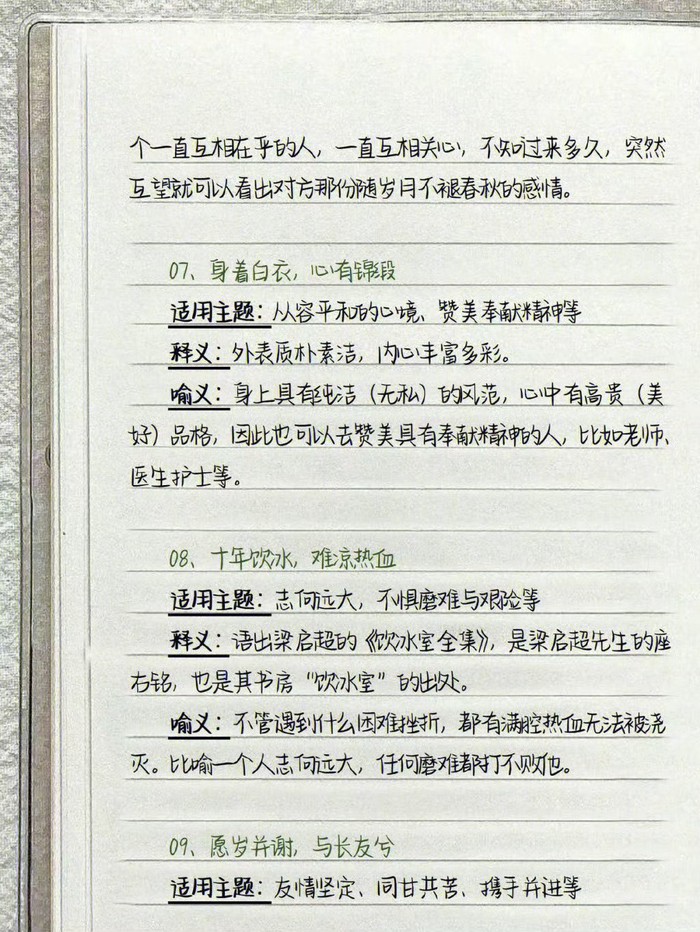 个一直互相在乎的人，一直互相关心，不知过来多久，突然
互望就可以看出对方那份随岁月不褪春秋的感情。
07、身着白衣，心有锦段
适用主题：从容平和的心境、赞美奉献精神等
释义：外表质朴素洁，内心丰富多彩。
喻义：身上具有纯洁（无私）的风范，心中有高贵（美
好）品格，因此也可以去赞美具有奉献精神的人，比如老师、
医生护士等。
08、十年饮冰，难凉热血
适用主题：志向远大，不惧磨难与艰险等
释义：语出梁启超的《饮冰室全集》，是梁启超先生的座
右铭，也是其书房“饮冰室”的出处。
喻义：不管遇到什么困难挫折，都有满腔热血无法被浇
灭。比喻一个人志向远大，任何磨难都打不败他。
09、愿岁并谢，与长友兮
适用主题：友情坚定、同甘共苦、携手并进等